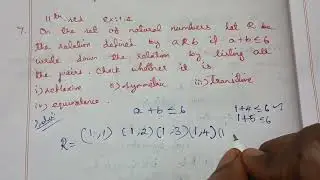 11th std ex:1.2
7. On the set of natural numbers let R be
the relation defined by aRb if a+b≤6
write down the relation by listing all
the pairs. Check whether it is
i) reflexive ii) symmetric iii) transitive
iv) equivalence
Soln:
a + b ≤ 6
1+4 ≤ 6 ✓
1+5 ≤ 6
R = (1,1) (1,2) (1,3) (1,4) (1